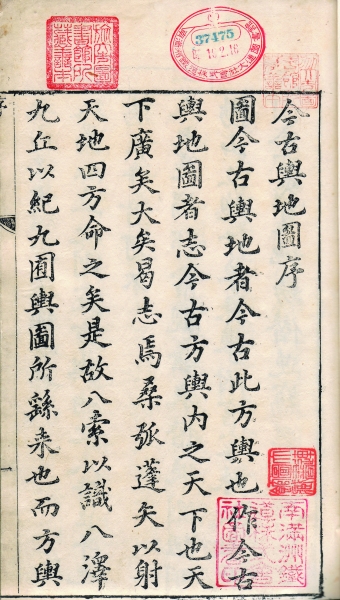 37475
今古輿地圖序
圖今古輿地者今古此方輿也作今古
輿地圖者志今古方輿內之天下也天
下廣矣大矣曷志焉桑弧蓬矢以射
天地四方命之矣是故八索以識八澤
九丘以紀九囿輿圖所繇来也而方輿
南滿洲鐵
道株式會